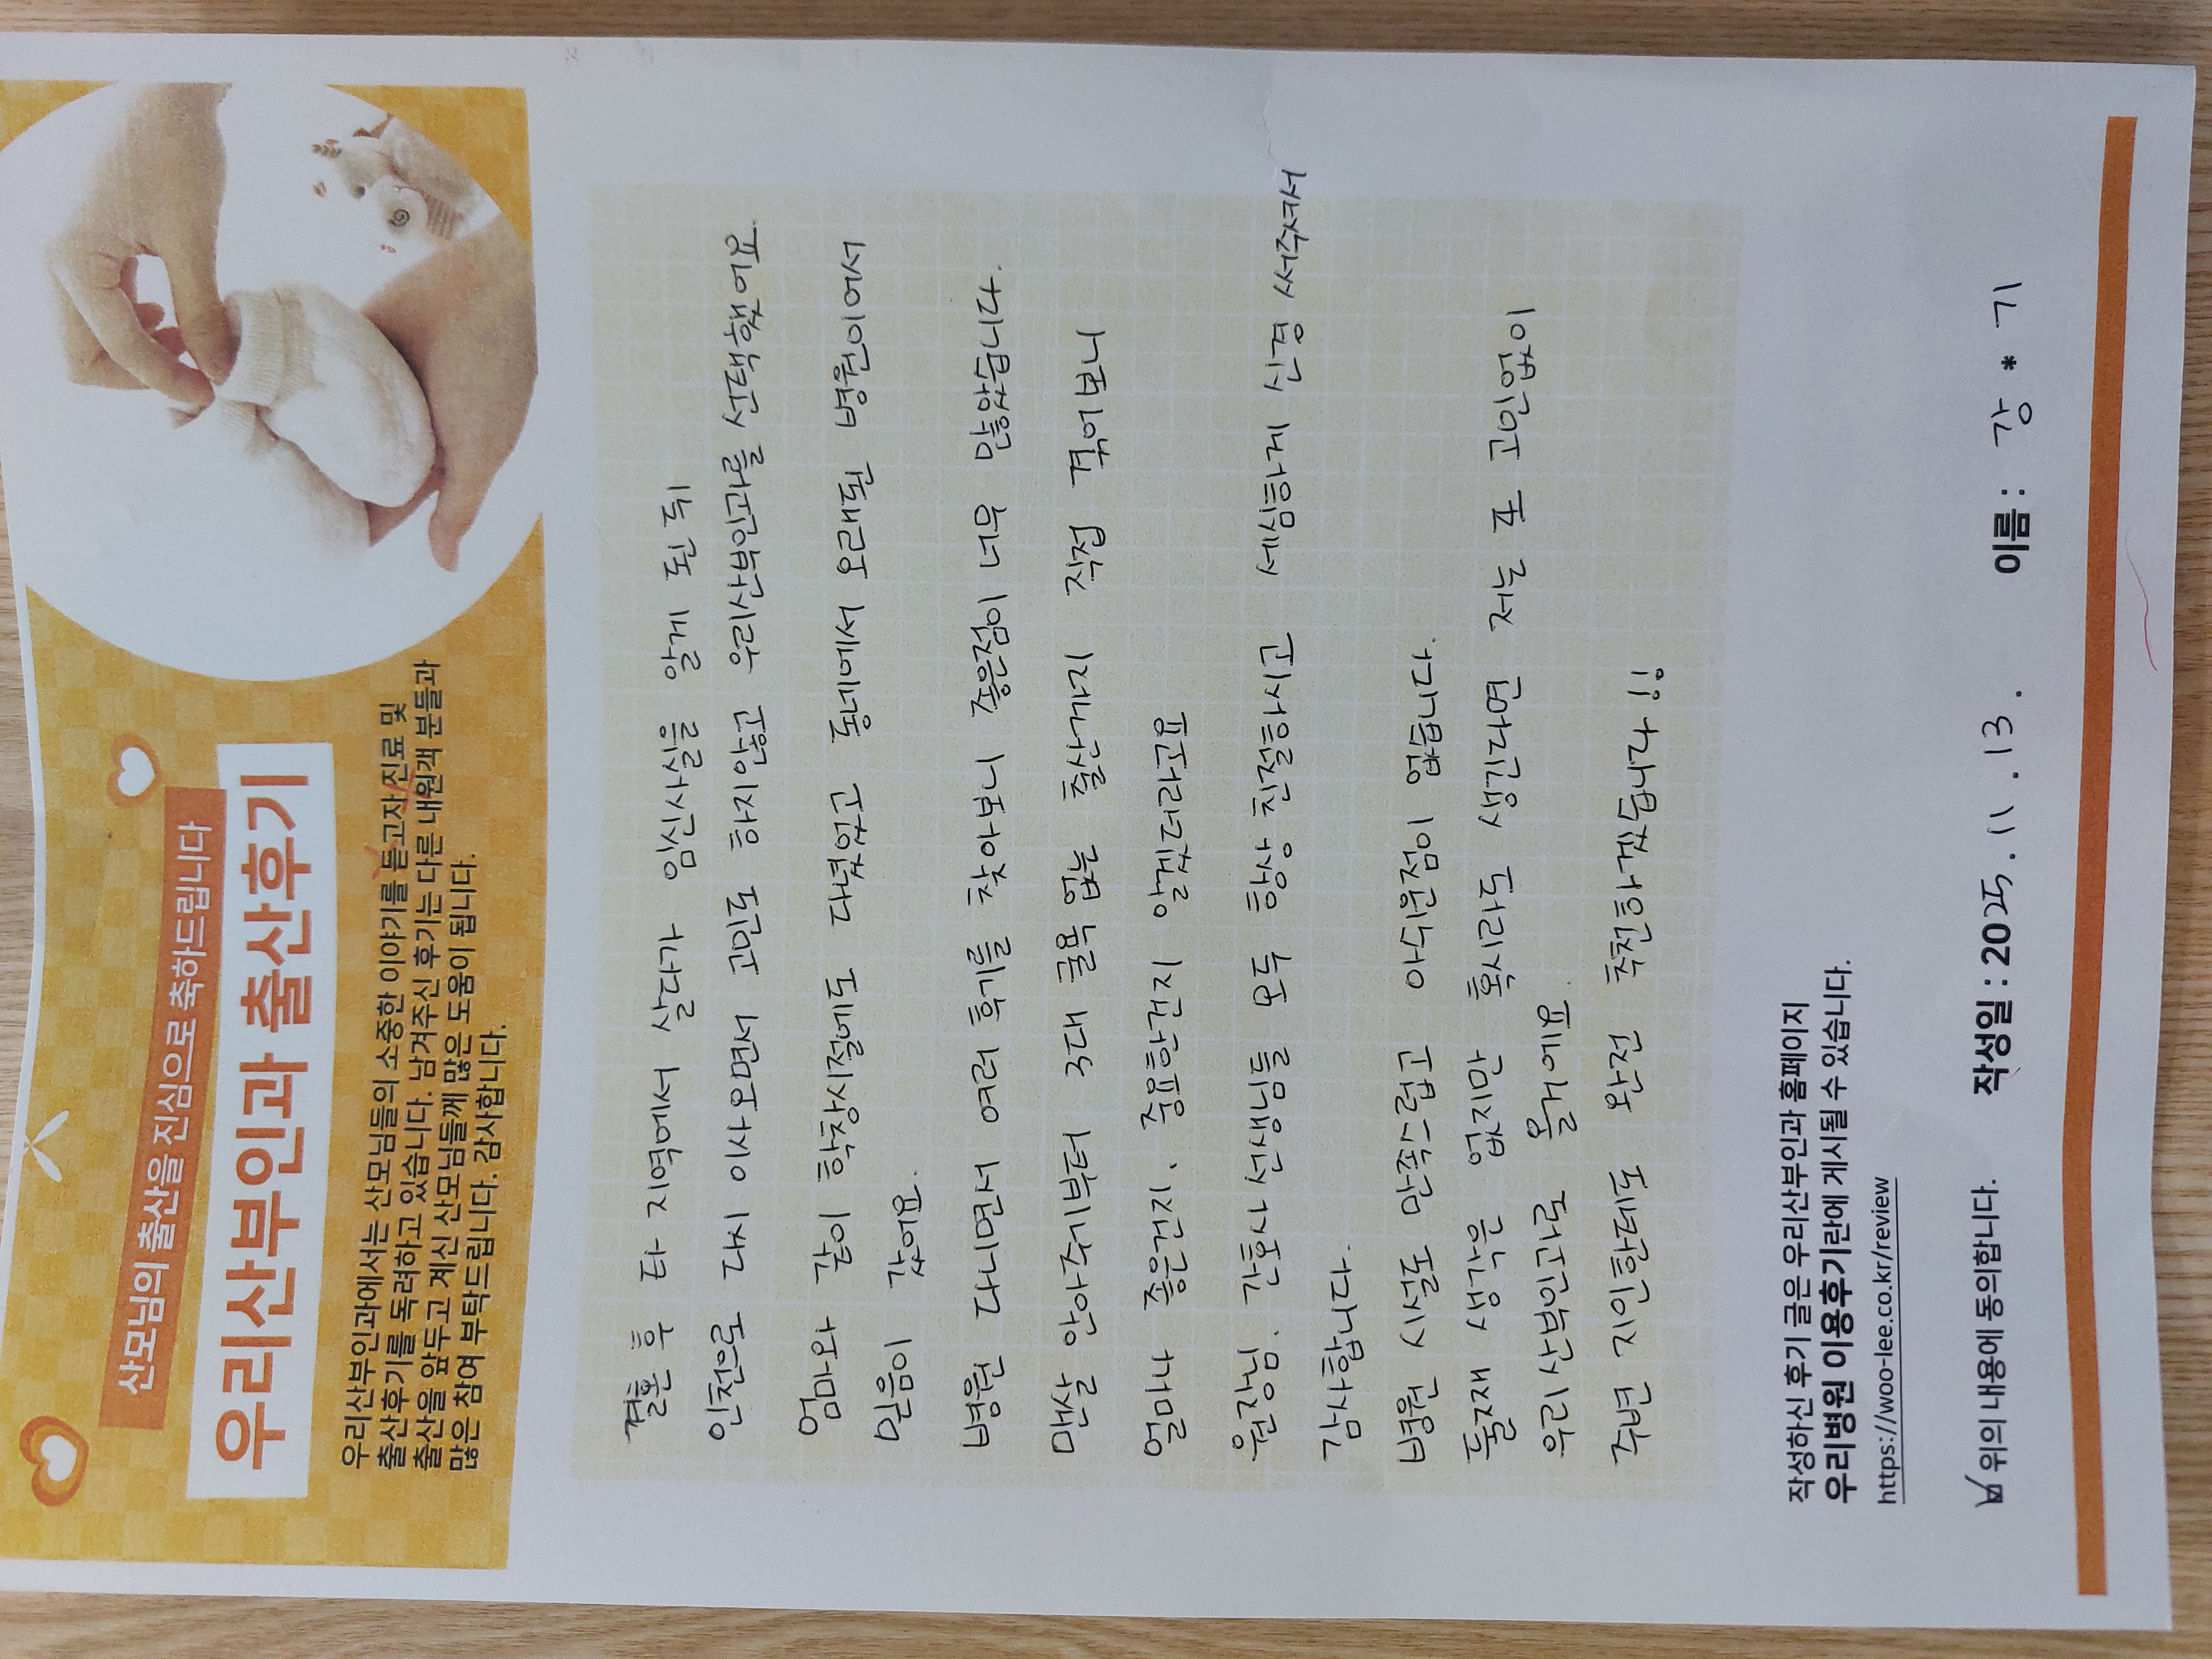 산모님의 출산을 진심으로 축하드립니다
우리산부인과 출산후기
우리산부인과에서는 산모님들의 소중한 이야기를 듣고자 진료 및
출산후기를 독려하고 있습니다. 남겨주신 후기는 다른 내원객 분들과
출산을 앞두고 계신 산모님들께 많은 도움이 됩니다.
많은 참여 부탁드립니다. 감사합니다.
결혼 후 타 지역에서 살다가 임신사실을 알게 된 뒤
인천으로 다시 이사오면서 고민도 하지않고 우리산부인과를 선택했어요.
엄마와 같이 학창시절에도 다녔었고 동네에서 오래된 병원이어서
믿음이 갔어요.
병원 다니면서 여러 후기를 찾아보니 좋은점이 너무 많았습니다.
맨살 안아주기부터 3대 굴욕 없는 출산까지 직접 겪어보니
얼마나 좋은건지, 중요한건지 알겠더라고요
원장님, 간호사 선생님들 모두 항상 친절하시고 세심하게 신경 써주셔서
감사합니다.
병원 시설도 만족스럽고 아쉬운점이 없습니다.
둘째 생각은 없지만 혹시라도 생긴다면 저는 또 고민없이
우리산부인과로 올거에요.
주변 지인한테도 완전 추천하겠습니다!!
작성하신 후기 글은 우리산부인과 홈페이지
우리병원 이용후기란에 게시될 수 있습니다.
https://woo-lee.co.kr/review
위의 내용에 동의합니다. 작성일 : 2025. 11. 13. 이름 : 강 * 기